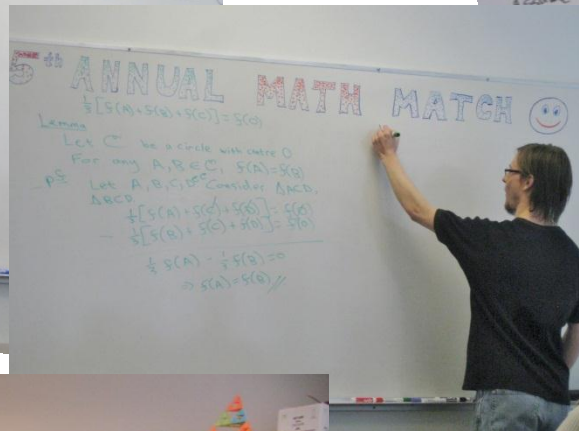 5th ANNUAL MATH MATCH
1/3 [f(A)+f(B)+f(C)] = f(O)
Lemma
Let C be a circle with centre O
For any A, B ∈ C, f(A)=f(B)
Pf Let A, B, C, D ∈ C Consider ΔACD,
ΔBCD
1/3 [f(A) + f(C) + f(D)] = f(O)
- 1/3 [f(B) + f(C) + f(D)] = f(O)
1/3 f(A) - 1/3 f(B) = 0
⇒ f(A) = f(B) //